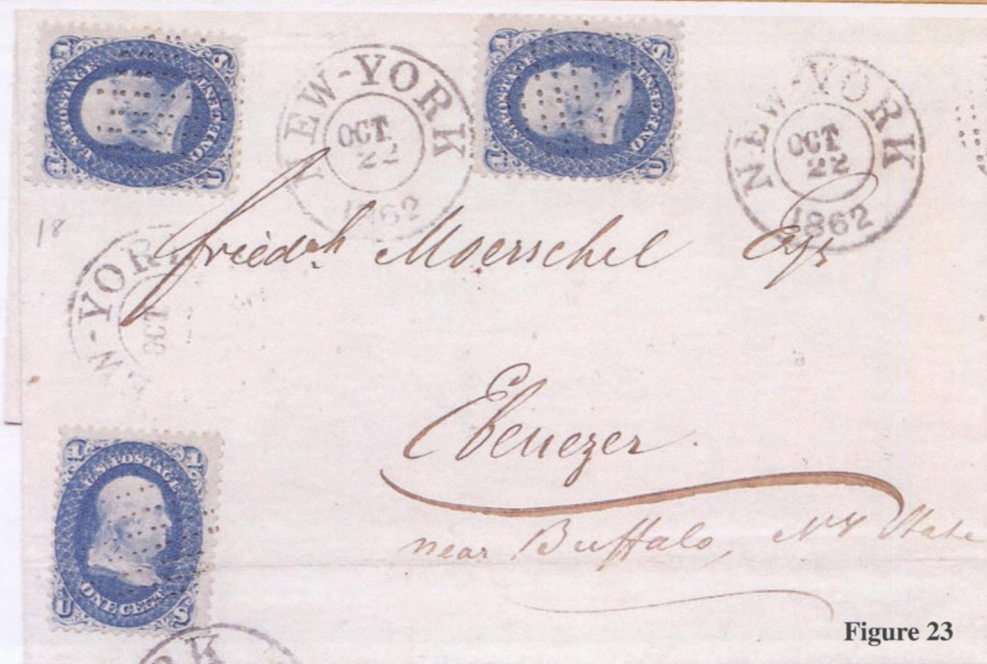 U.S. POSTAGE
ONE CENT
NEW-YORK
OCT.
22
1862
U.S. POSTAGE
ONE CENT
NEW-YORK
OCT.
22
1862
18
Friedch Moerschel Esqr
W-YORK
OCT
Ebenezer
near Buffalo, NY State
U.S. POSTAGE
ONE CENT
RK
Figure 23